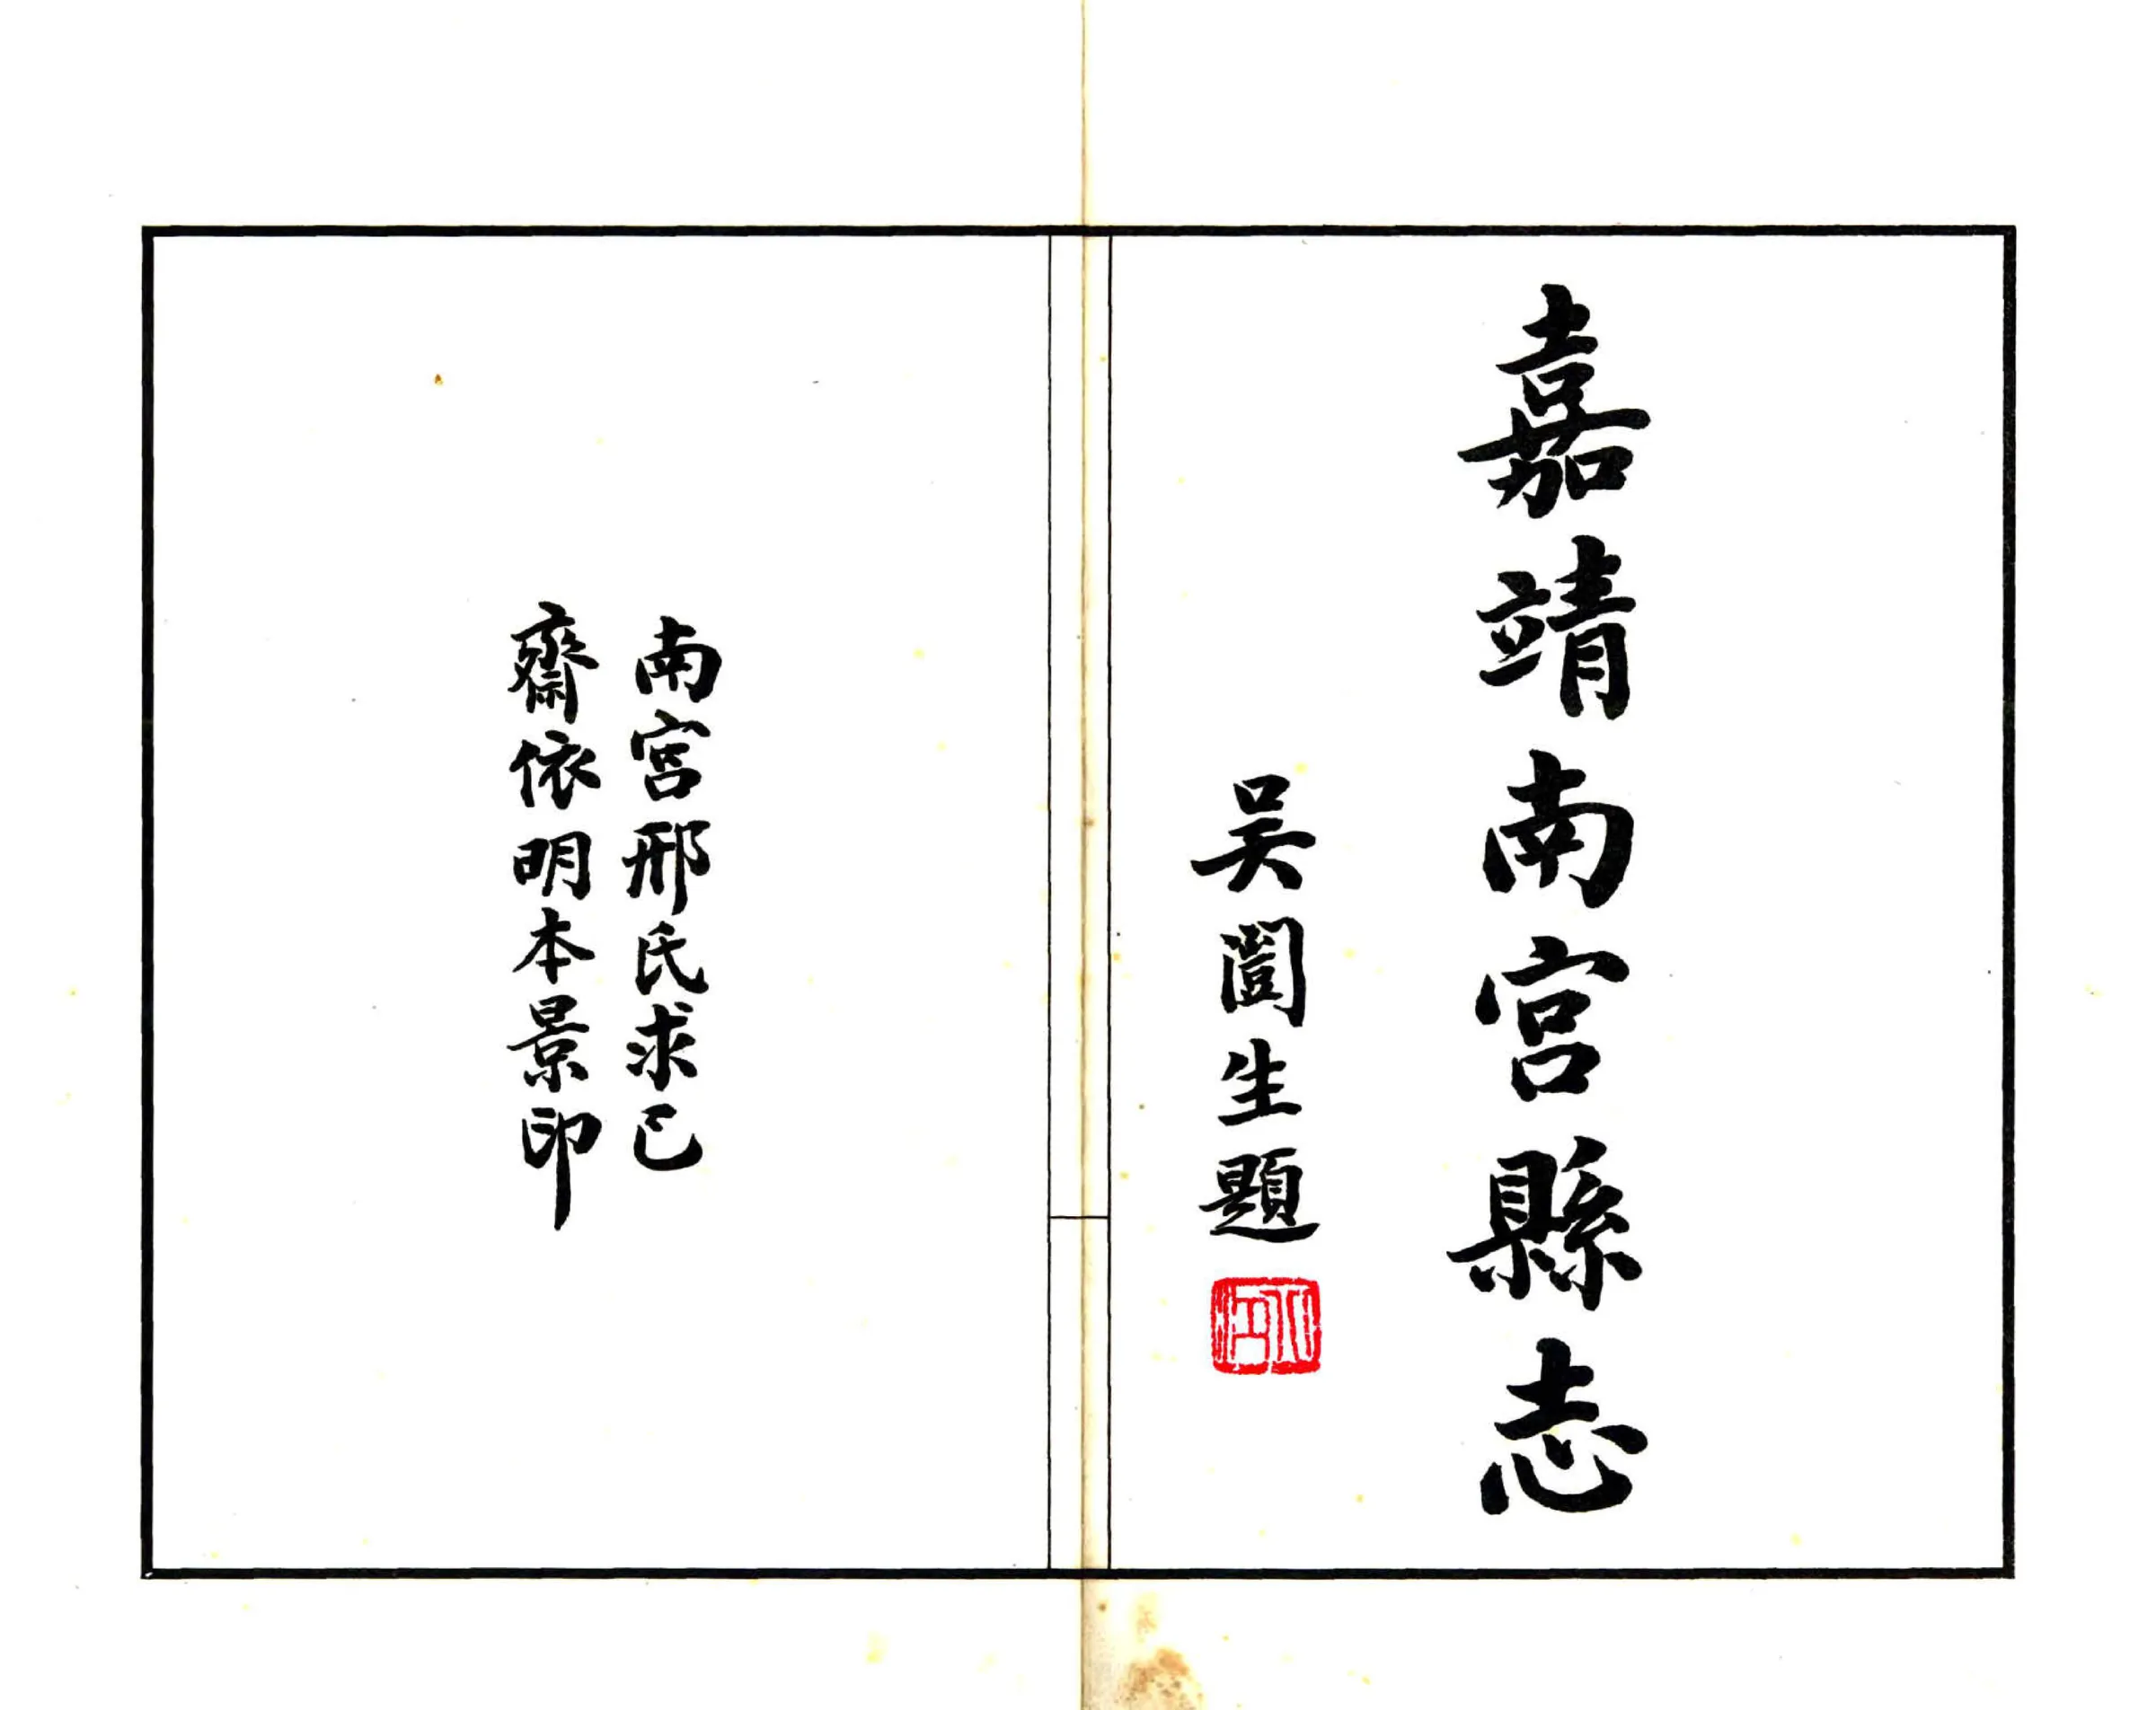 嘉靖南宮縣志
吳闓生題
南宮邢氏求己
齋依明本景印